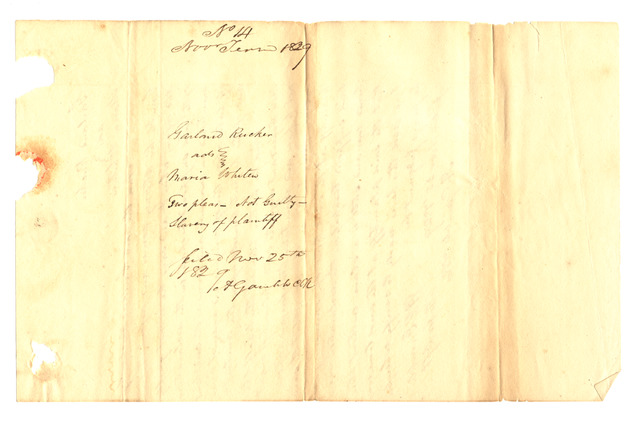 No 14
Nov Term 1829
Garland Rucker
ads
Maria Whiten
Two pleas – Not Guilty –
Slavery of plaintiff
filed Nov 25th
1829
Gamble Clk